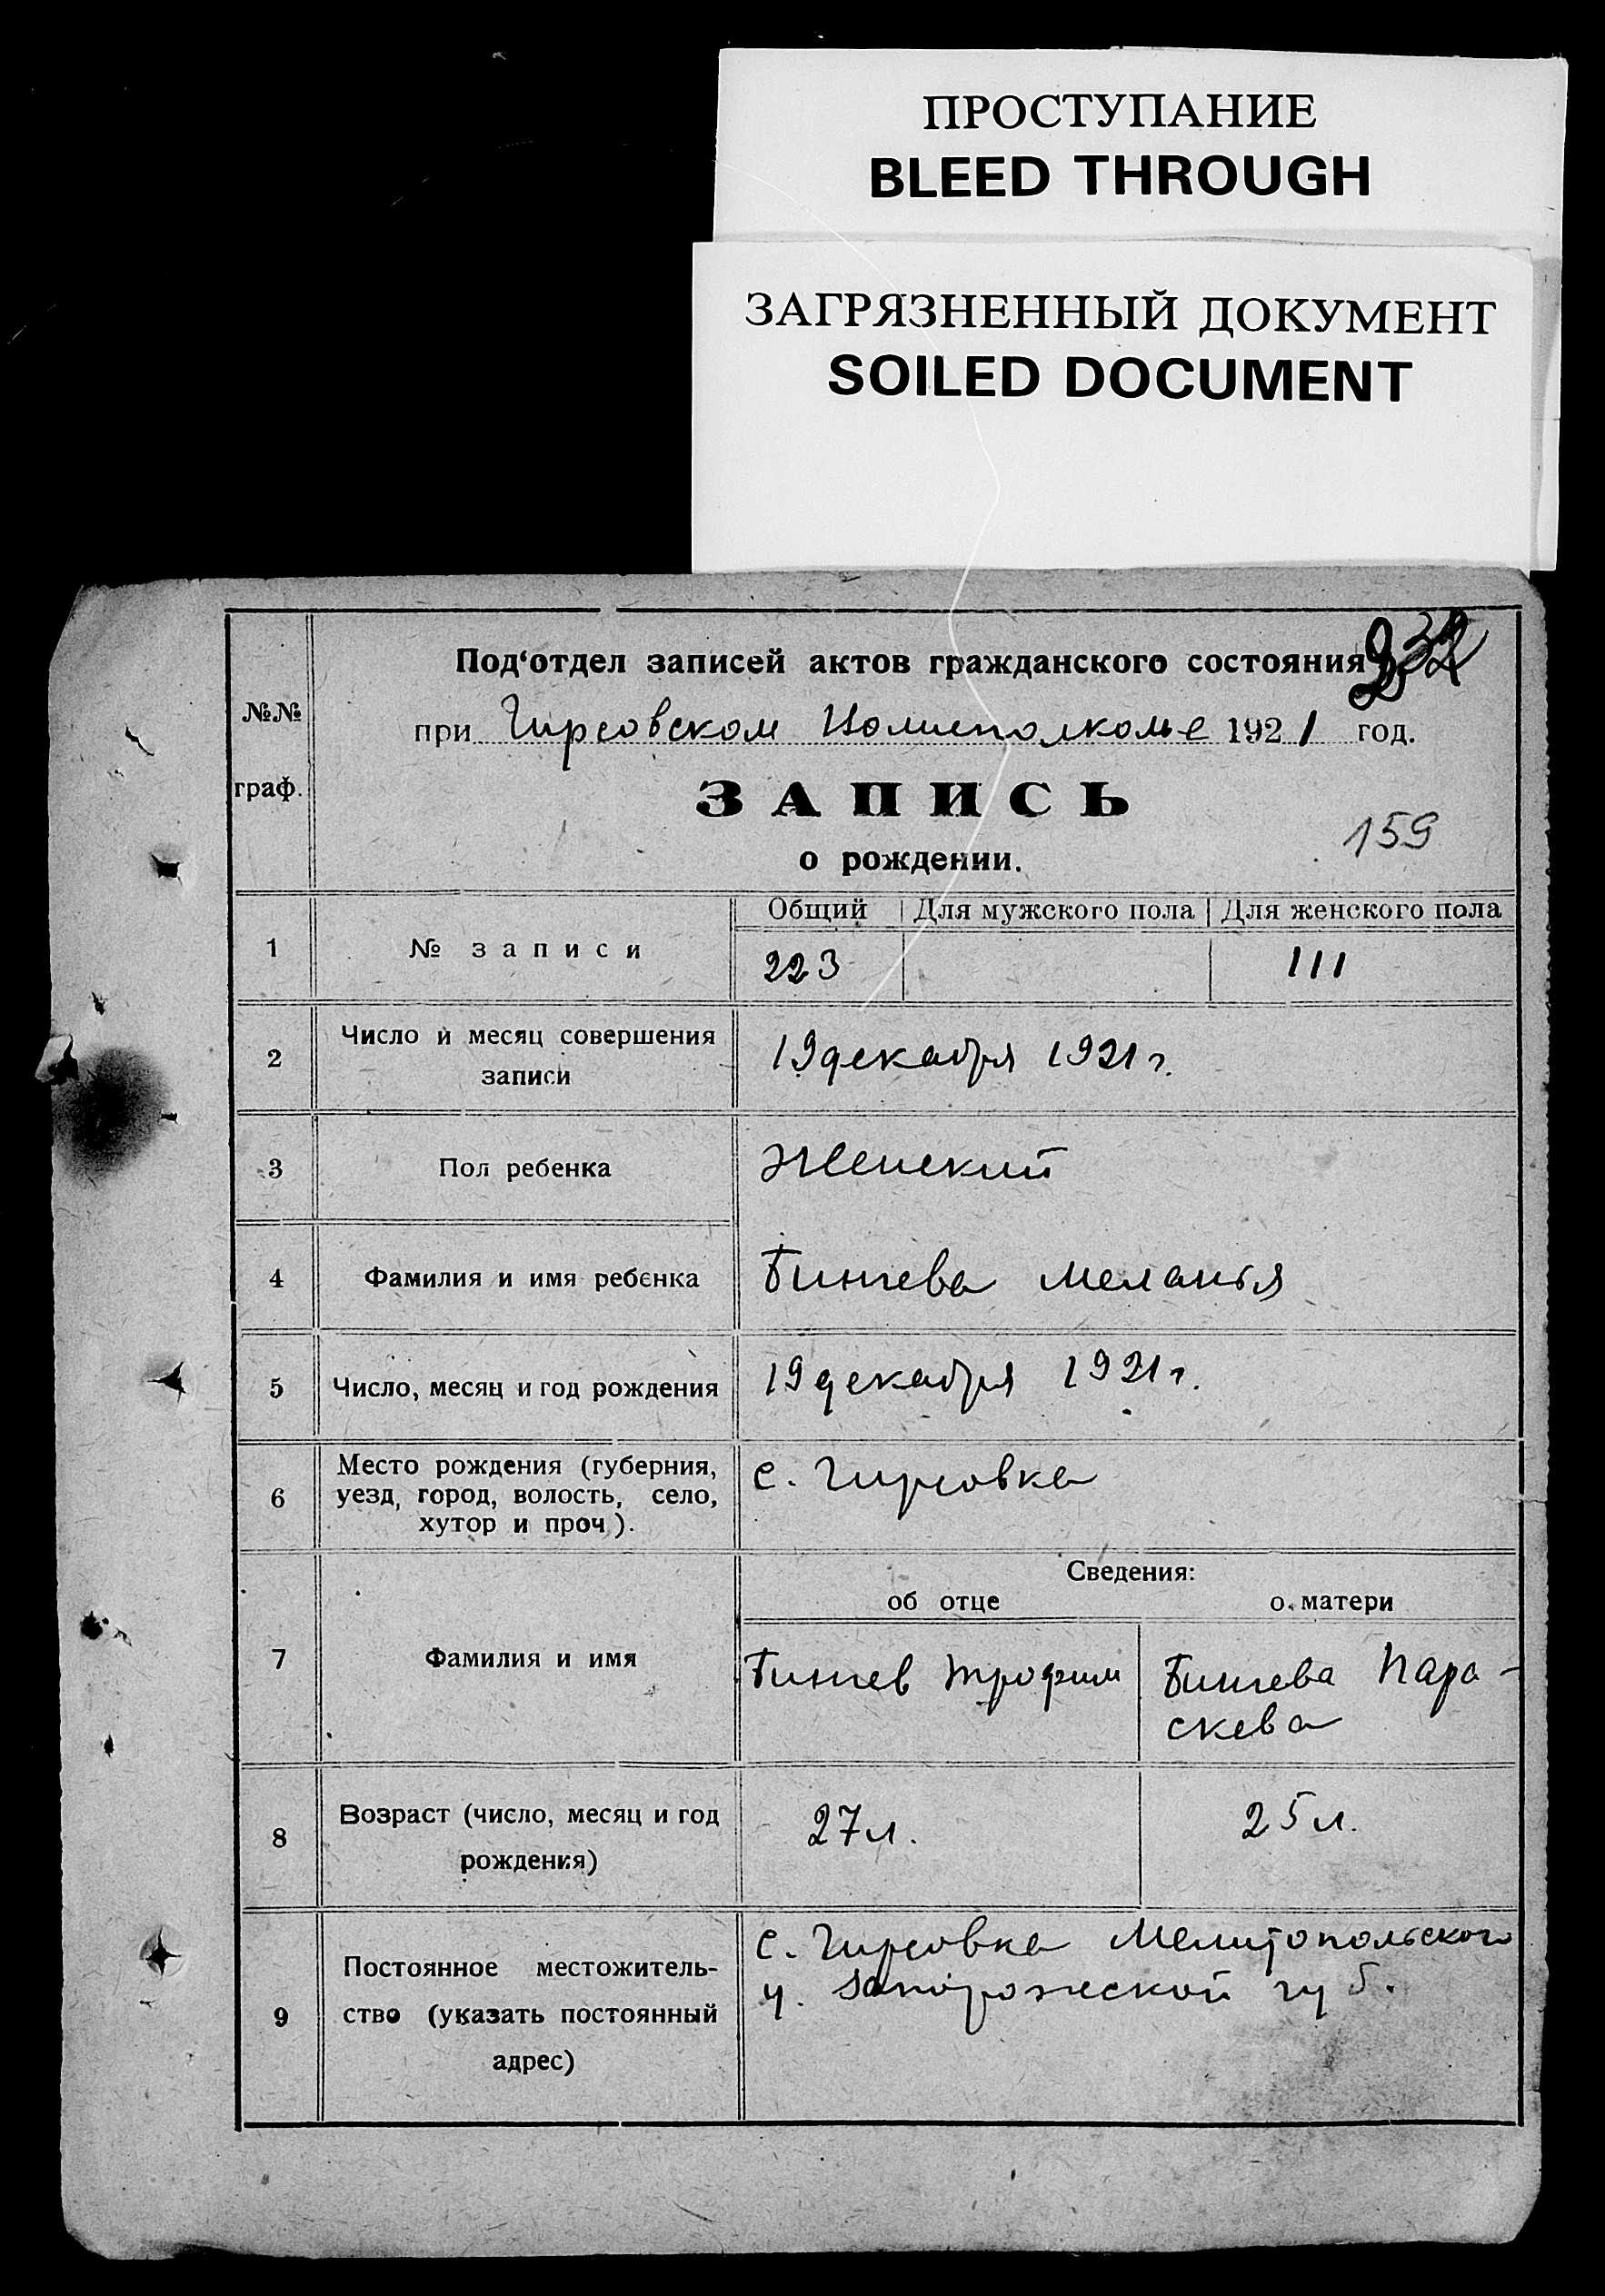 ПРОСТУПАНИЕ
BLEED THROUGH
ЗАГРЯЗНЕННЫЙ ДОКУМЕНТ
SOILED DOCUMENT
№№
граф.
Под‘отдел записей актов гражданского состояния
при Гирсовском Волисполкоме 1921 год.
ЗАПИСЬ
159
о рождении.
Общий Для мужского пола Для женского пола
1 № записи 223 111
2 Число и месяц совершения
записи
19 декабря 1921 г.
3 Пол ребенка Женский
4 Фамилия и имя ребенка Бинева Меланья
5 Число, месяц и год рождения 19 декабря 1921 г.
6 Место рождения (губерния,
уезд, город, волость, село,
хутор и проч.).
с. Гирсовка
Сведения:
об отце о матери
7 Фамилия и имя Бинев Трофим Бинева Пара-
скева
8 Возраст (число, месяц и год
рождения)
27 л. 25 л.
9 Постоянное местожитель-
ство (указать постоянный
адрес)
с. Гирсовка Мелитопольского
у. Запорожской губ.